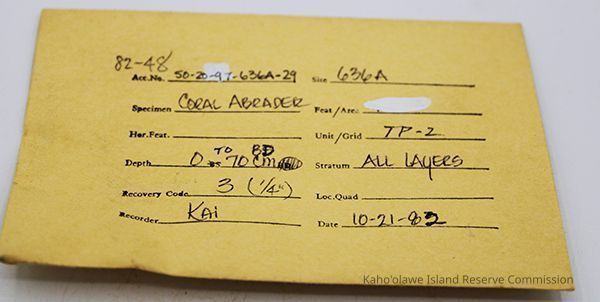 82-48
Acc.No. 50-20-97-636A-29 Site 636A
Specimen CORAL ABRADER Feat/Area
Hor.Feat. Unit/Grid TP-2
Depth 0 TO 70 cm BD Stratum ALL LAYERS
Recovery Code 3 (1/4") Loc.Quad
Recorder KAI Date 10-21-82
Kaho'olawe Island Reserve Commission